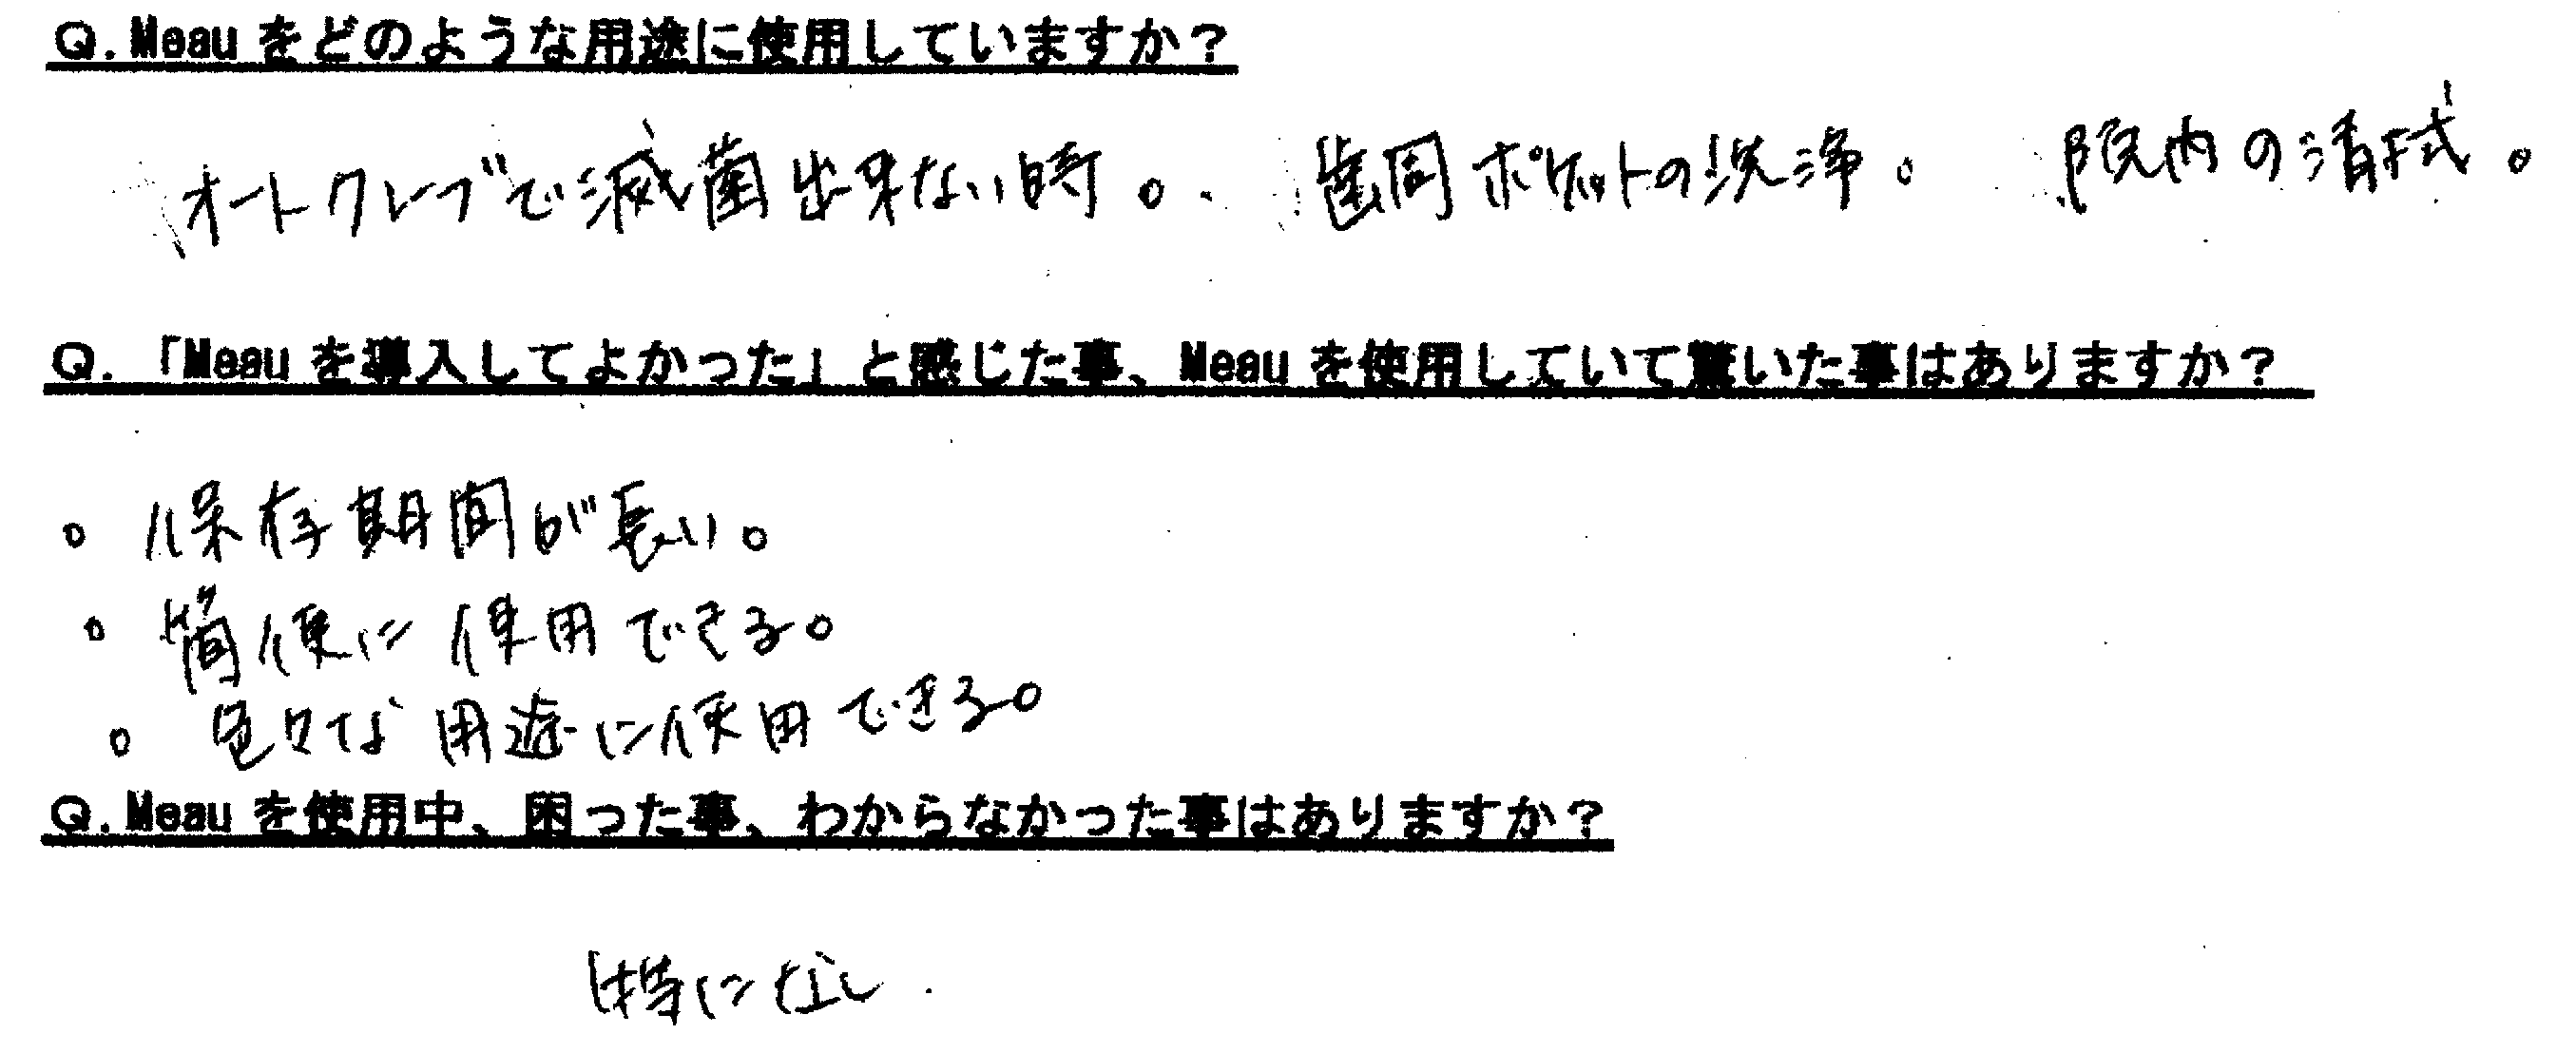 Q. Meau をどのような用途に使用していますか？
オートクレーブで滅菌出来ない時。 歯周ポケットの洗浄。 院内の清拭。
Q. 「Meau を導入してよかった」と感じた事、Meau を使用していて驚いた事はありますか？
。保存期間が長い。
。簡便に使用できる。
。色々な用途に使用できる。
Q. Meau を使用中、困った事、わからなかった事はありますか？
特になし.